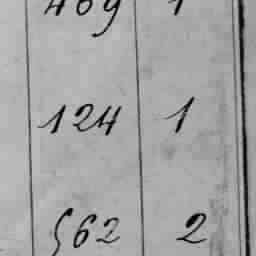 469 1
124 1
562 2